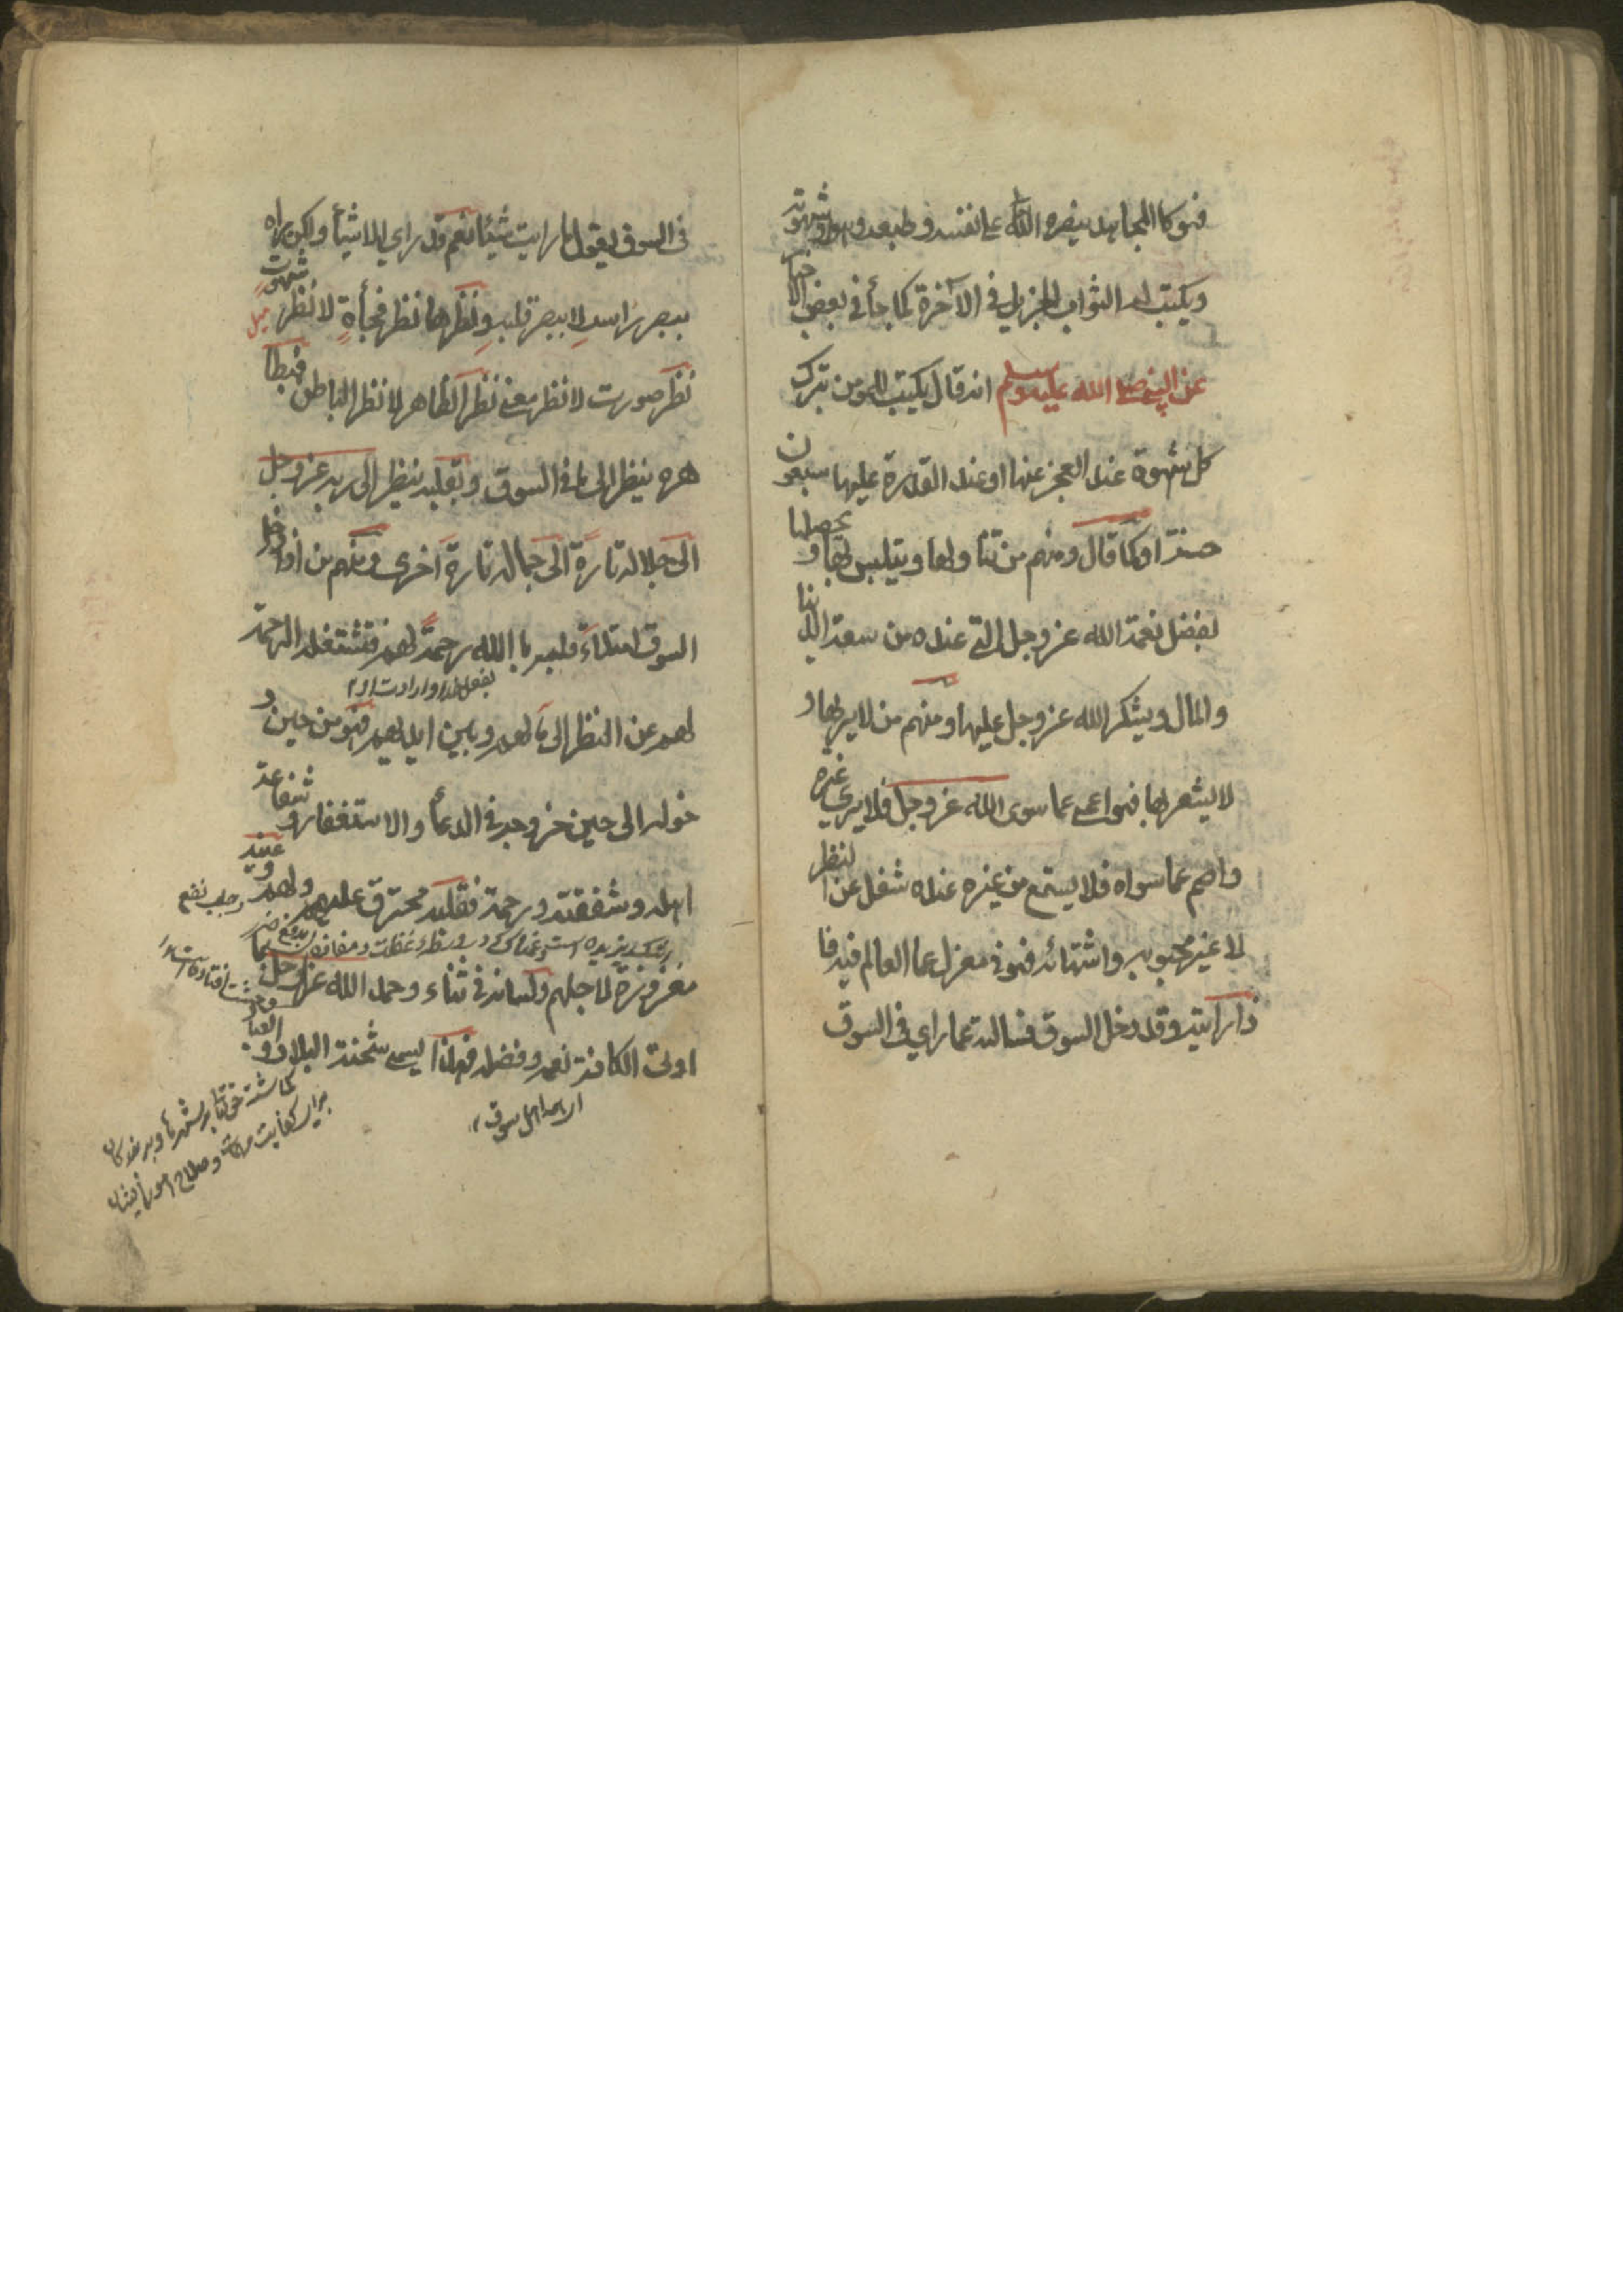 فهو كالمجاهد ينصره الله على نفسه وطبعه وهواه وشهوته
ويكتب له الثواب الجزيل في الآخرة كما جأ في بعض الاخبار
عن النبي صلى الله عليه وسلم انه قال يكتب للمومن بترك
كل شهوة عند العجز عنها او عند القدرة عليها سبعون
حسنة او كما قال ومنهم من تناولها ويتلبس بها ويحصلها
بفضل نعمة الله عز وجل التي عنده من سعة الدنيا
والمال ويشكر الله عز وجل عليها ومنهم من لا يراها و
لا يشعر بها فهو اعمى عما سوى الله عز وجل فلا يرى غيره
واصم عما سواه فلا يستمع من غيره عنده شغل عن النظر
لا غير محبوبه واشتهائه فهو في معزل عما العالم فيه فا
ذا رايته وقد دخل السوق فسالته عما راي في السوق
في السوق يقول ما رايت شيئا نعم قد راي الاشيأ ولكن راه
ببصر راسه لا ببصر قلبه ونظرها نظر فجأة لا نظر شهوت
ميل
نظر صورت لا نظر معنى نظر الظاهر لا نظر الباطن فبظا
هره ينظر الى ما في السوق وبقلبه ينظر الى ربه عز وجل
الى جلاله تارة الى جماله تارة اخرى ومنهم من اذا دخل
السوق امتلاء قلبه بالله رحمة لهم فتشتغله الرحمة
لهم عن النظر الى ما لهم وبين ايديهم فهو من حين د
خوله الى حين خروجه في الدعأ والاستغفار وشفاعة
اهله وشفقته ورحمة فقلبه محترق عليهم ولهم وعينه
وجلب نفع
مغروزة لاجلهم ولسانه في ثناء وحمد الله عز وجل بما
اولى الكافة نعمه وفضله فهذا يسمى شحنة البلاد والعباد